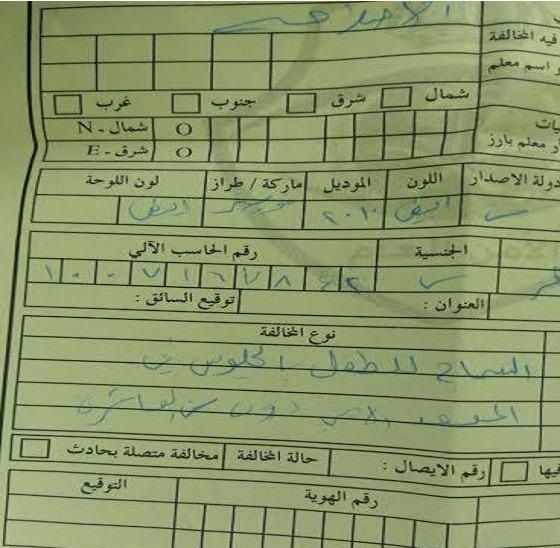 فيه المخالفة
اسم معلم
شمال شرق جنوب غرب
شمال - N
معلم بارز
شرق - E
دولة الاصدار اللون الموديل ماركة / طراز لون اللوحة
س ابيض ٢٠١٠ ابيض
الجنسية رقم الحاسب الآلي
س
العنوان : توقيع السائق :
نوع المخالفة
السماح للطفل بالجلوس في
المقعد الامامي دون سن العاشرة
فيها رقم الايصال : حالة المخالفة مخالفة متصلة بحادث
رقم الهوية التوقيع